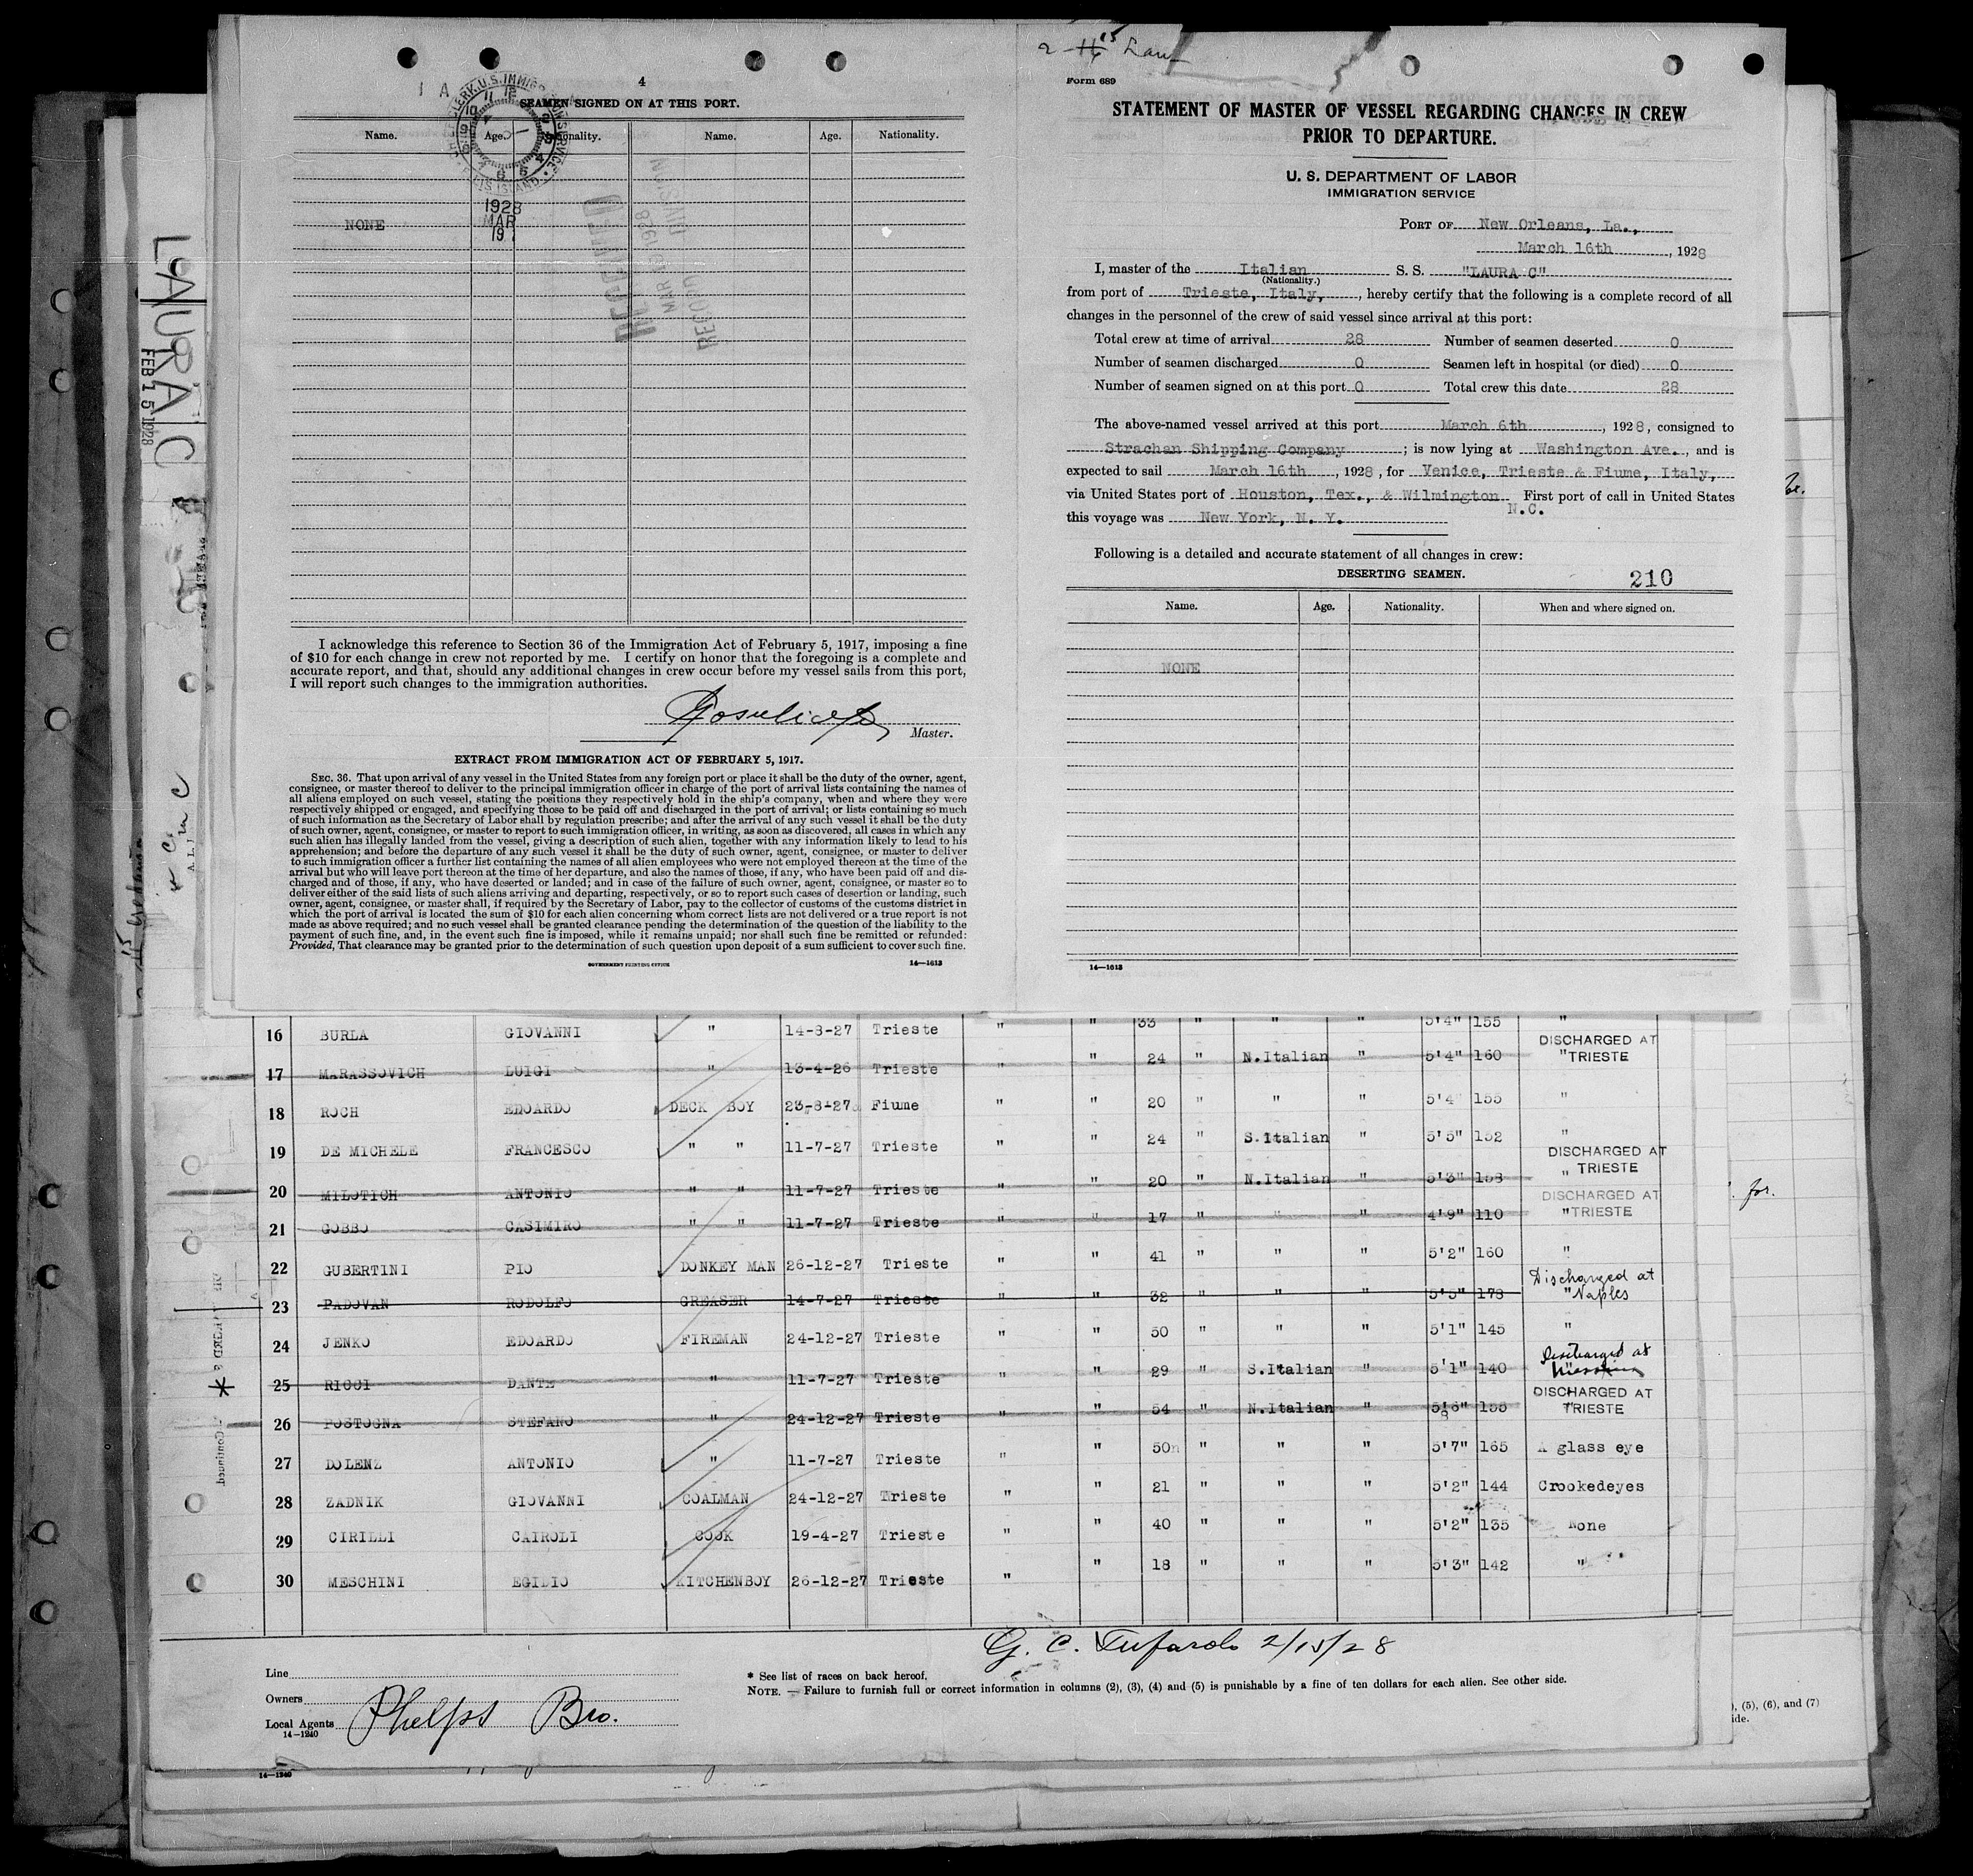 4
SEAMEN SIGNED ON AT THIS PORT.
Name. Age. Nationality. Name. Age. Nationality.
CLERK. U.S. IMMIGRATION SERVICE
ELLIS ISLAND
1928
MAR
19
NONE
RECEIVED
MAR 1928
RECORD DIVISION
I acknowledge this reference to Section 36 of the Immigration Act of February 5, 1917, imposing a fine
of $10 for each change in crew not reported by me. I certify on honor that the foregoing is a complete and
accurate report, and that, should any additional changes in crew occur before my vessel sails from this port,
I will report such changes to the immigration authorities.
Master.
EXTRACT FROM IMMIGRATION ACT OF FEBRUARY 5, 1917.
SEC. 36. That upon arrival of any vessel in the United States from any foreign port or place it shall be the duty of the owner, agent,
consignee, or master thereof to deliver to the principal immigration officer in charge of the port of arrival lists containing the names of
all aliens employed on such vessel, stating the positions they respectively hold in the ship's company, when and where they were
respectively shipped or engaged, and specifying those to be paid off and discharged in the port of arrival; or lists containing so much
of such information as the Secretary of Labor shall by regulation prescribe; and after the arrival of any such vessel it shall be the duty
of such owner, agent, consignee, or master to report to such immigration officer, in writing, as soon as discovered, all cases in which any
such alien has illegally landed from the vessel, giving a description of such alien, together with any information likely to lead to his
apprehension; and before the departure of any such vessel it shall be the duty of such owner, agent, consignee, or master to deliver
to such immigration officer a further list containing the names of all alien employees who were not employed thereon at the time of the
arrival but who will leave port thereon at the time of her departure, and also the names of those, if any, who have been paid off and dis-
charged and of those, if any, who have deserted or landed; and in case of the failure of such owner, agent, consignee, or master so to
deliver either of the said lists of such aliens arriving and departing, respectively, or so to report such cases of desertion or landing, such
owner, agent, consignee, or master shall, if required by the Secretary of Labor, pay to the collector of customs of the customs district in
which the port of arrival is located the sum of $10 for each alien concerning whom correct lists are not delivered or a true report is not
made as above required; and no such vessel shall be granted clearance pending the determination of the question of the liability to the
payment of such fine, and, in the event such fine is imposed, while it remains unpaid; nor shall such fine be remitted or refunded:
Provided, That clearance may be granted prior to the determination of such question upon deposit of a sum sufficient to cover such fine.
GOVERNMENT PRINTING OFFICE 14—1613
Form 689
STATEMENT OF MASTER OF VESSEL REGARDING CHANGES IN CREW
PRIOR TO DEPARTURE.
U. S. DEPARTMENT OF LABOR
IMMIGRATION SERVICE
PORT OF New Orleans, La.,
March 16th, 1928
I, master of the Italian S. S. "LAURA C"
(Nationality.)
from port of Trieste, Italy, , hereby certify that the following is a complete record of all
changes in the personnel of the crew of said vessel since arrival at this port:
Total crew at time of arrival 28 Number of seamen deserted 0
Number of seamen discharged 0 Seamen left in hospital (or died) 0
Number of seamen signed on at this port 0 Total crew this date 28
The above-named vessel arrived at this port March 6th, 1928, consigned to
Strachan Shipping Company ; is now lying at Washington Ave., and is
expected to sail March 16th, 1928, for Venice, Trieste & Fiume, Italy,
via United States port of Houston, Tex., & Wilmington First port of call in United States
N.C.
this voyage was New York, N. Y.
Following is a detailed and accurate statement of all changes in crew:
DESERTING SEAMEN. 210
Name. Age. Nationality. When and where signed on.
NONE
14—1613
LAURA C
FEB 15 1928
16 BURLA GIOVANNI " 14-8-27 Trieste " " 33 " " " 5'4" 155 "
DISCHARGED AT
17 MARASSOVICH LUIGI " 13-4-26 Trieste " " 24 " N.Italian " 5'4" 160 " TRIESTE
18 ROCH EDOARDO DECK BOY 23-8-27 Fiume " " 20 " " " 5'4 155 "
19 DE MICHELE FRANCESCO " " 11-7-27 Trieste " " 24 " S.Italian " 5'5" 152 "
DISCHARGED AT
20 MILOTICH ANTONIO " " 11-7-27 Trieste " " 20 " N.Italian " 5'3" 158 " TRIESTE
DISCHARGED AT
21 GOBBO CASIMIRO " " 11-7-27 Trieste " " 17 " " " 4'9" 110 " TRIESTE
22 GUBERTINI PIO DONKEY MAN 26-12-27 Trieste " " 41 " " " 5'2" 160 "
Discharged at
23 PADOVAN RODOLFO GREASER 14-7-27 Trieste " " 32 " " " 5'5" 178 " Naples
24 JENKO EDOARDO FIREMAN 24-12-27 Trieste " " 50 " " " 5'1" 145 "
Discharged at
25 RICCI DANTE " 11-7-27 Trieste " " 29 " S.Italian " 5'1" 140 Messina
DISCHARGED AT
26 POSTOGNA STEFANO " 24-12-27 Trieste " " 54 " N.Italian " 5'6" 155 TRIESTE
27 DOLENZ ANTONIO " 11-7-27 Trieste " " 50 " " " 5'7" 165 A glass eye
28 ZADNIK GIOVANNI COALMAN 24-12-27 Trieste " " 21 " " " 5'2" 144 Crookedeyes
29 CIRILLI CAIROLI COOK 19-4-27 Trieste " " 40 " " " 5'2" 135 None
30 MESCHINI EGIDIO KITCHENBOY 26-12-27 Trieste " " 18 " " " 5'3" 142 "
G. C. 2/15/28
Line
Owners
Local Agents Phelps Bro.
14-1240
* See list of races on back hereof.
NOTE. — Failure to furnish full or correct information in columns (2), (3), (4) and (5) is punishable by a fine of ten dollars for each alien. See other side.
, (5), (6), and (7)
ide.
14—1240